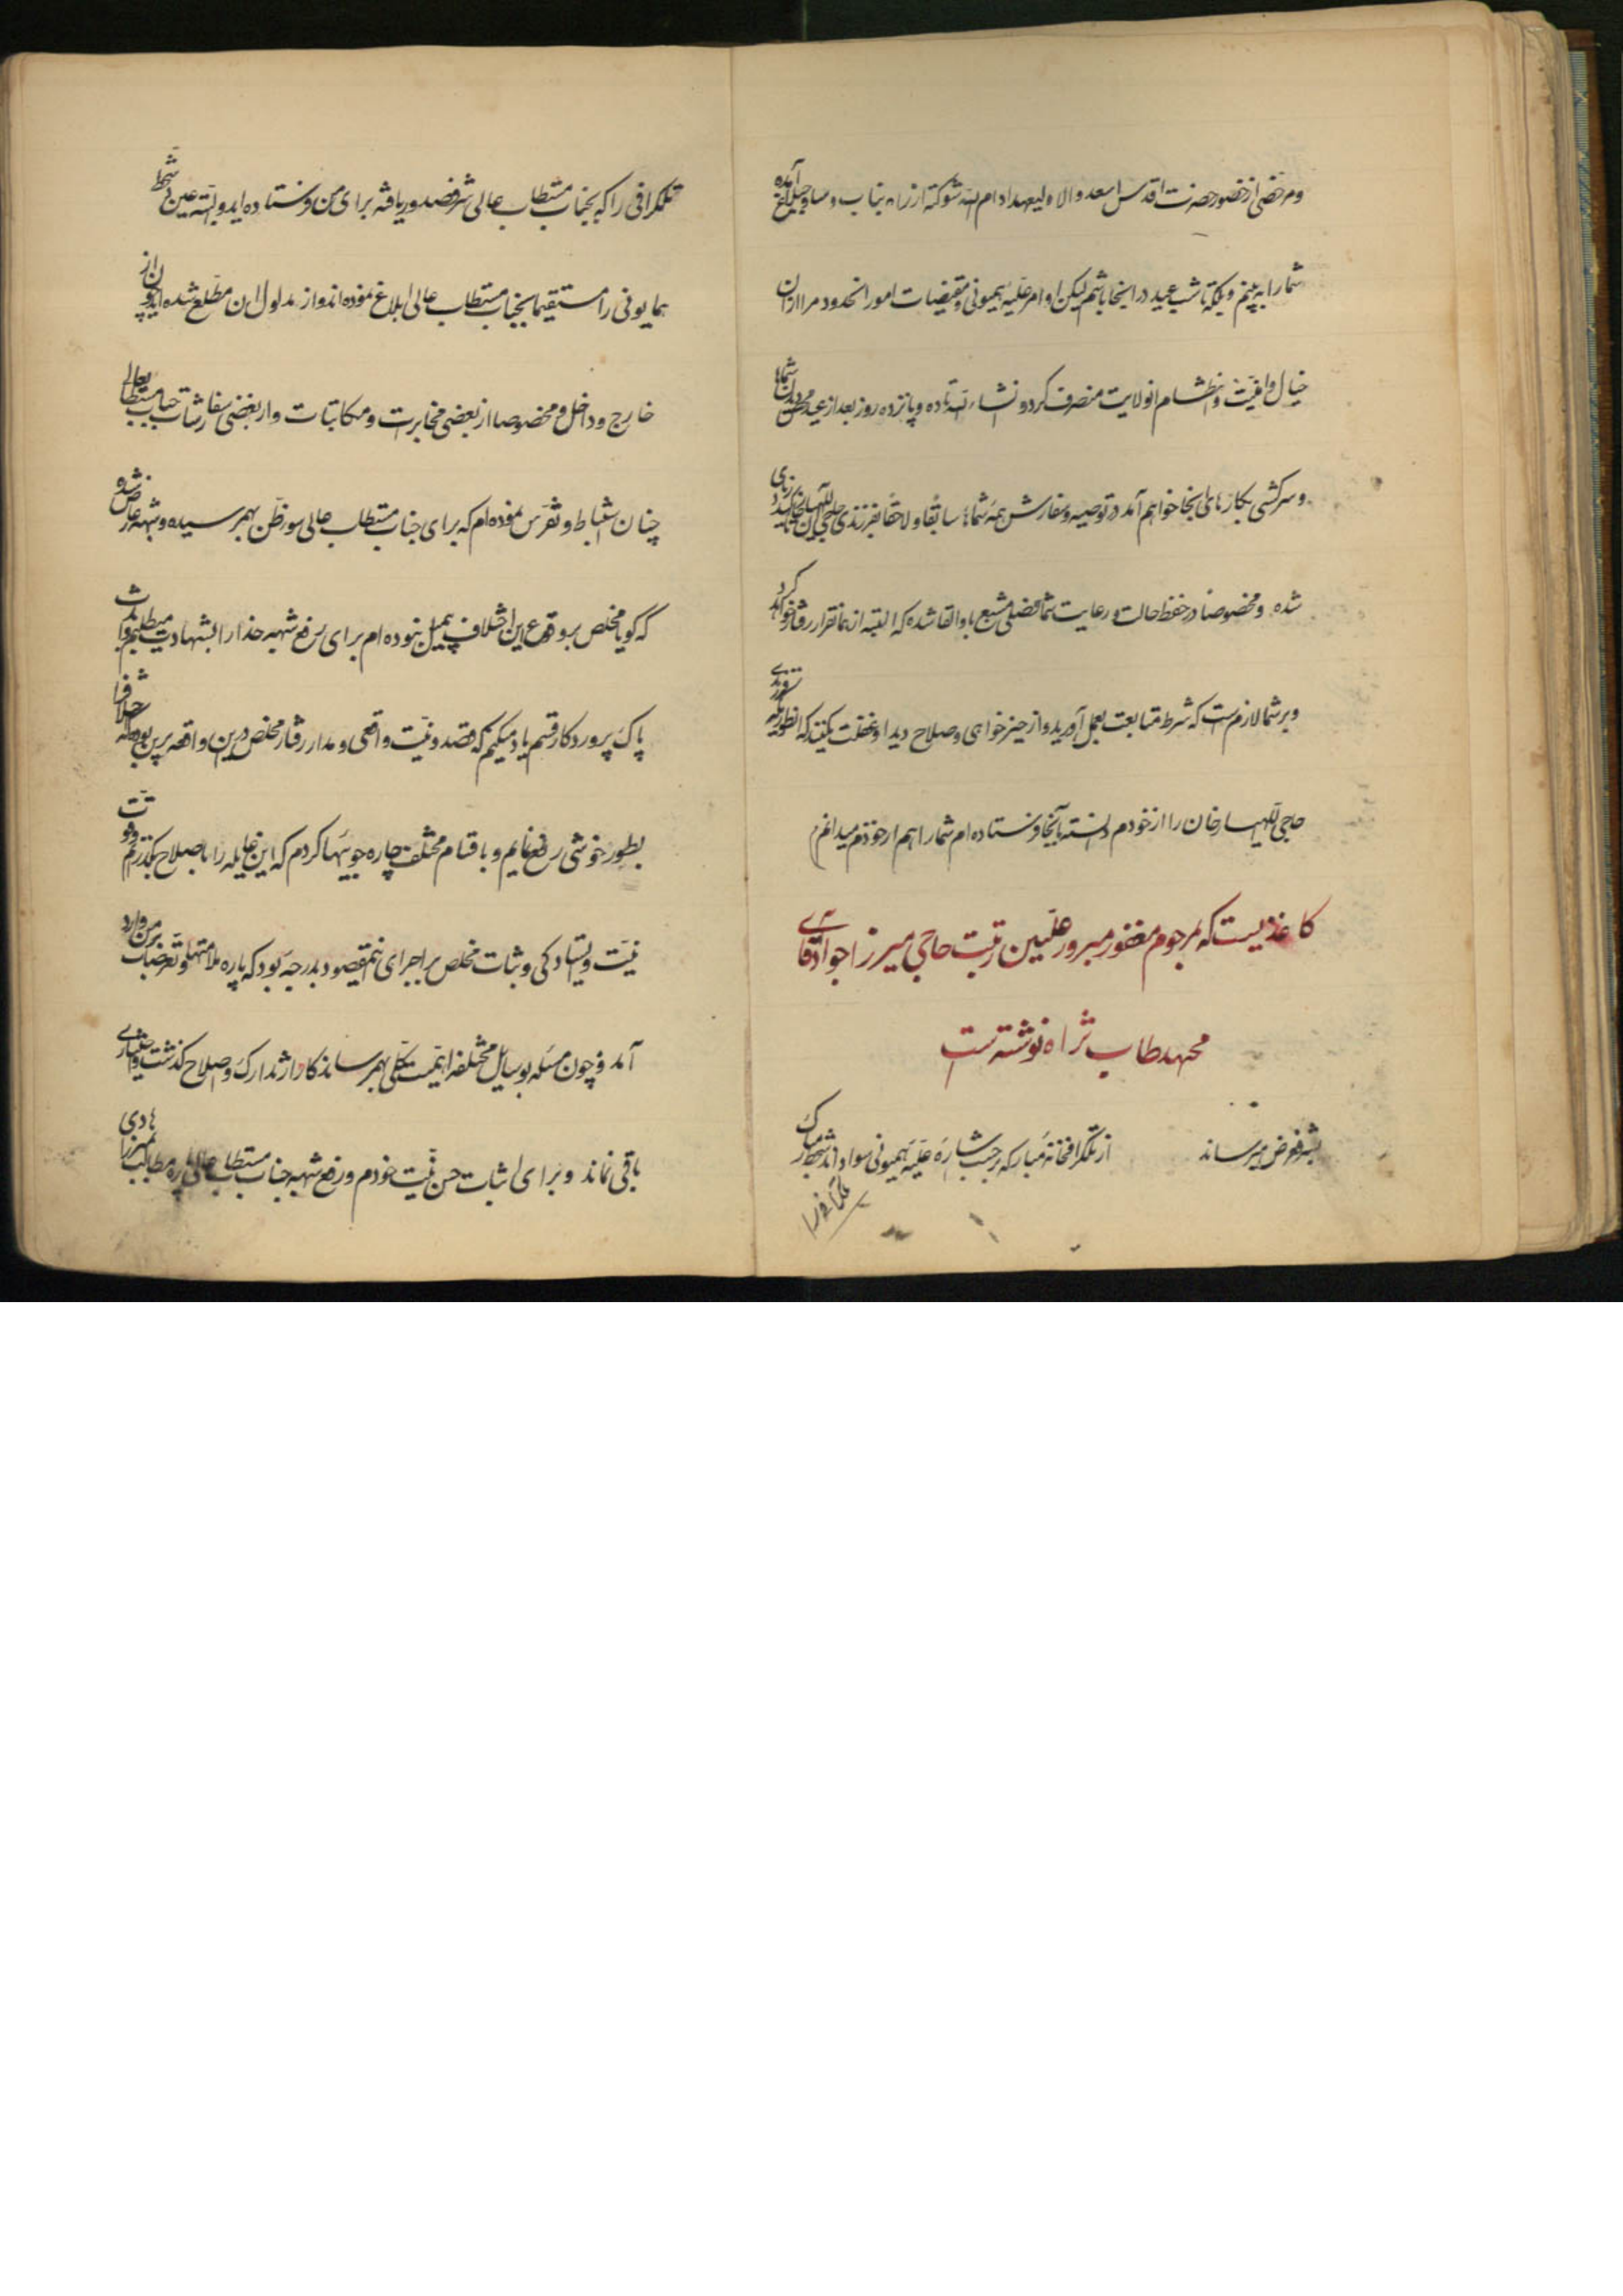 و مرخصی از حضور حضرت اقدس اسعد والا ولیعهد ادام الله شوکته از راه بناب و ساوجبلاغ آمده
شما را به بینم و بلکه تا شب عید در اینجا باشم لیکن اوامر علیه همیونی و مقتضیات امور انحدود مرا از ان
خیال وامنیت و انتظام انولایت منصرف کرد و انشاءالله تا ده و پانزده روز بعد از عید محض دیدن شماها
و سرکشی بکارهای اینجا خواهم آمد در توصیه و سفارش همه شماها سابقا و لاحقا بفرزندی حاجی اللهیارخان تاکید زیادی
شده و مخصوصا در حفظ حالت و رعایت شما فصلی مشبع باو القا شده که البته از همانقرار رفتار خواهد کرد
و بر شما لازم است که شرط متابعت بعمل آورید و از خیرخواهی و صلاح دید او غفلت نکنید که انطوریکه
حاجی اللهیارخان را از خودم دانسته بآنجا فرستاده ام شما را هم از خودم میدانم
کاغذیست که بمرحوم مغفور مبرور علیین رتبت حاجی میرزا جواد آقای
مجتهد طاب ثراه نوشته است
بشرف عرض میرساند از تلگرافخانه مبارکه بر حسب اشاره علیه همیونی سواد دستخط مبارک
تلگرافی را
تلگرافی را که بجناب مستطاب عالی شرف صدور یافته برای من فرستاده اید و البته عین دستخط
همایونی را مستقیما بجناب مستطاب عالی ابلاغ نموده اند و از مدلول ان مطلع شده اید چون از
خارج و داخل و مخصوصا از بعضی مخابرت و مکاتبات و از بعضی سفارشات جناب مستطاب عالی
چنان استنباط و تفرس نموده ام که برای جناب مستطاب عالی سوء ظن بهمرسیده و شبهه عارض شده
که گویا مخلص بر وقوع این اختلاف بی میل نبوده ام برای رفع شبهه خدا را بشهادت میطلبم و بذات
پاک پروردگار قسم یاد میکنم که قصد و نیت واقعی و مدار رفتار مخلص درین واقعه برین بود که اختلاف را
بطور خوشی رفع نمایم و باقسام مختلف چاره جوییها کردم که این غایله را باصلاح بگذرانم
نیت و ایستادگی و ثبات مخلص بر اجرای اینمقصود بدرجه بود که پاره ملامتها و تعرضات بر من وارد
آمد و چون مسئله بوسایل مختلفه اهمیت کلی بهمرساند کار از تدارک و صلاح گذشت و اختیاری
باقی نماند و برای اثبات حسن نیت خودم و رفع شبهه جناب مستطاب عالی پاره مطالب بمیرزا هادی